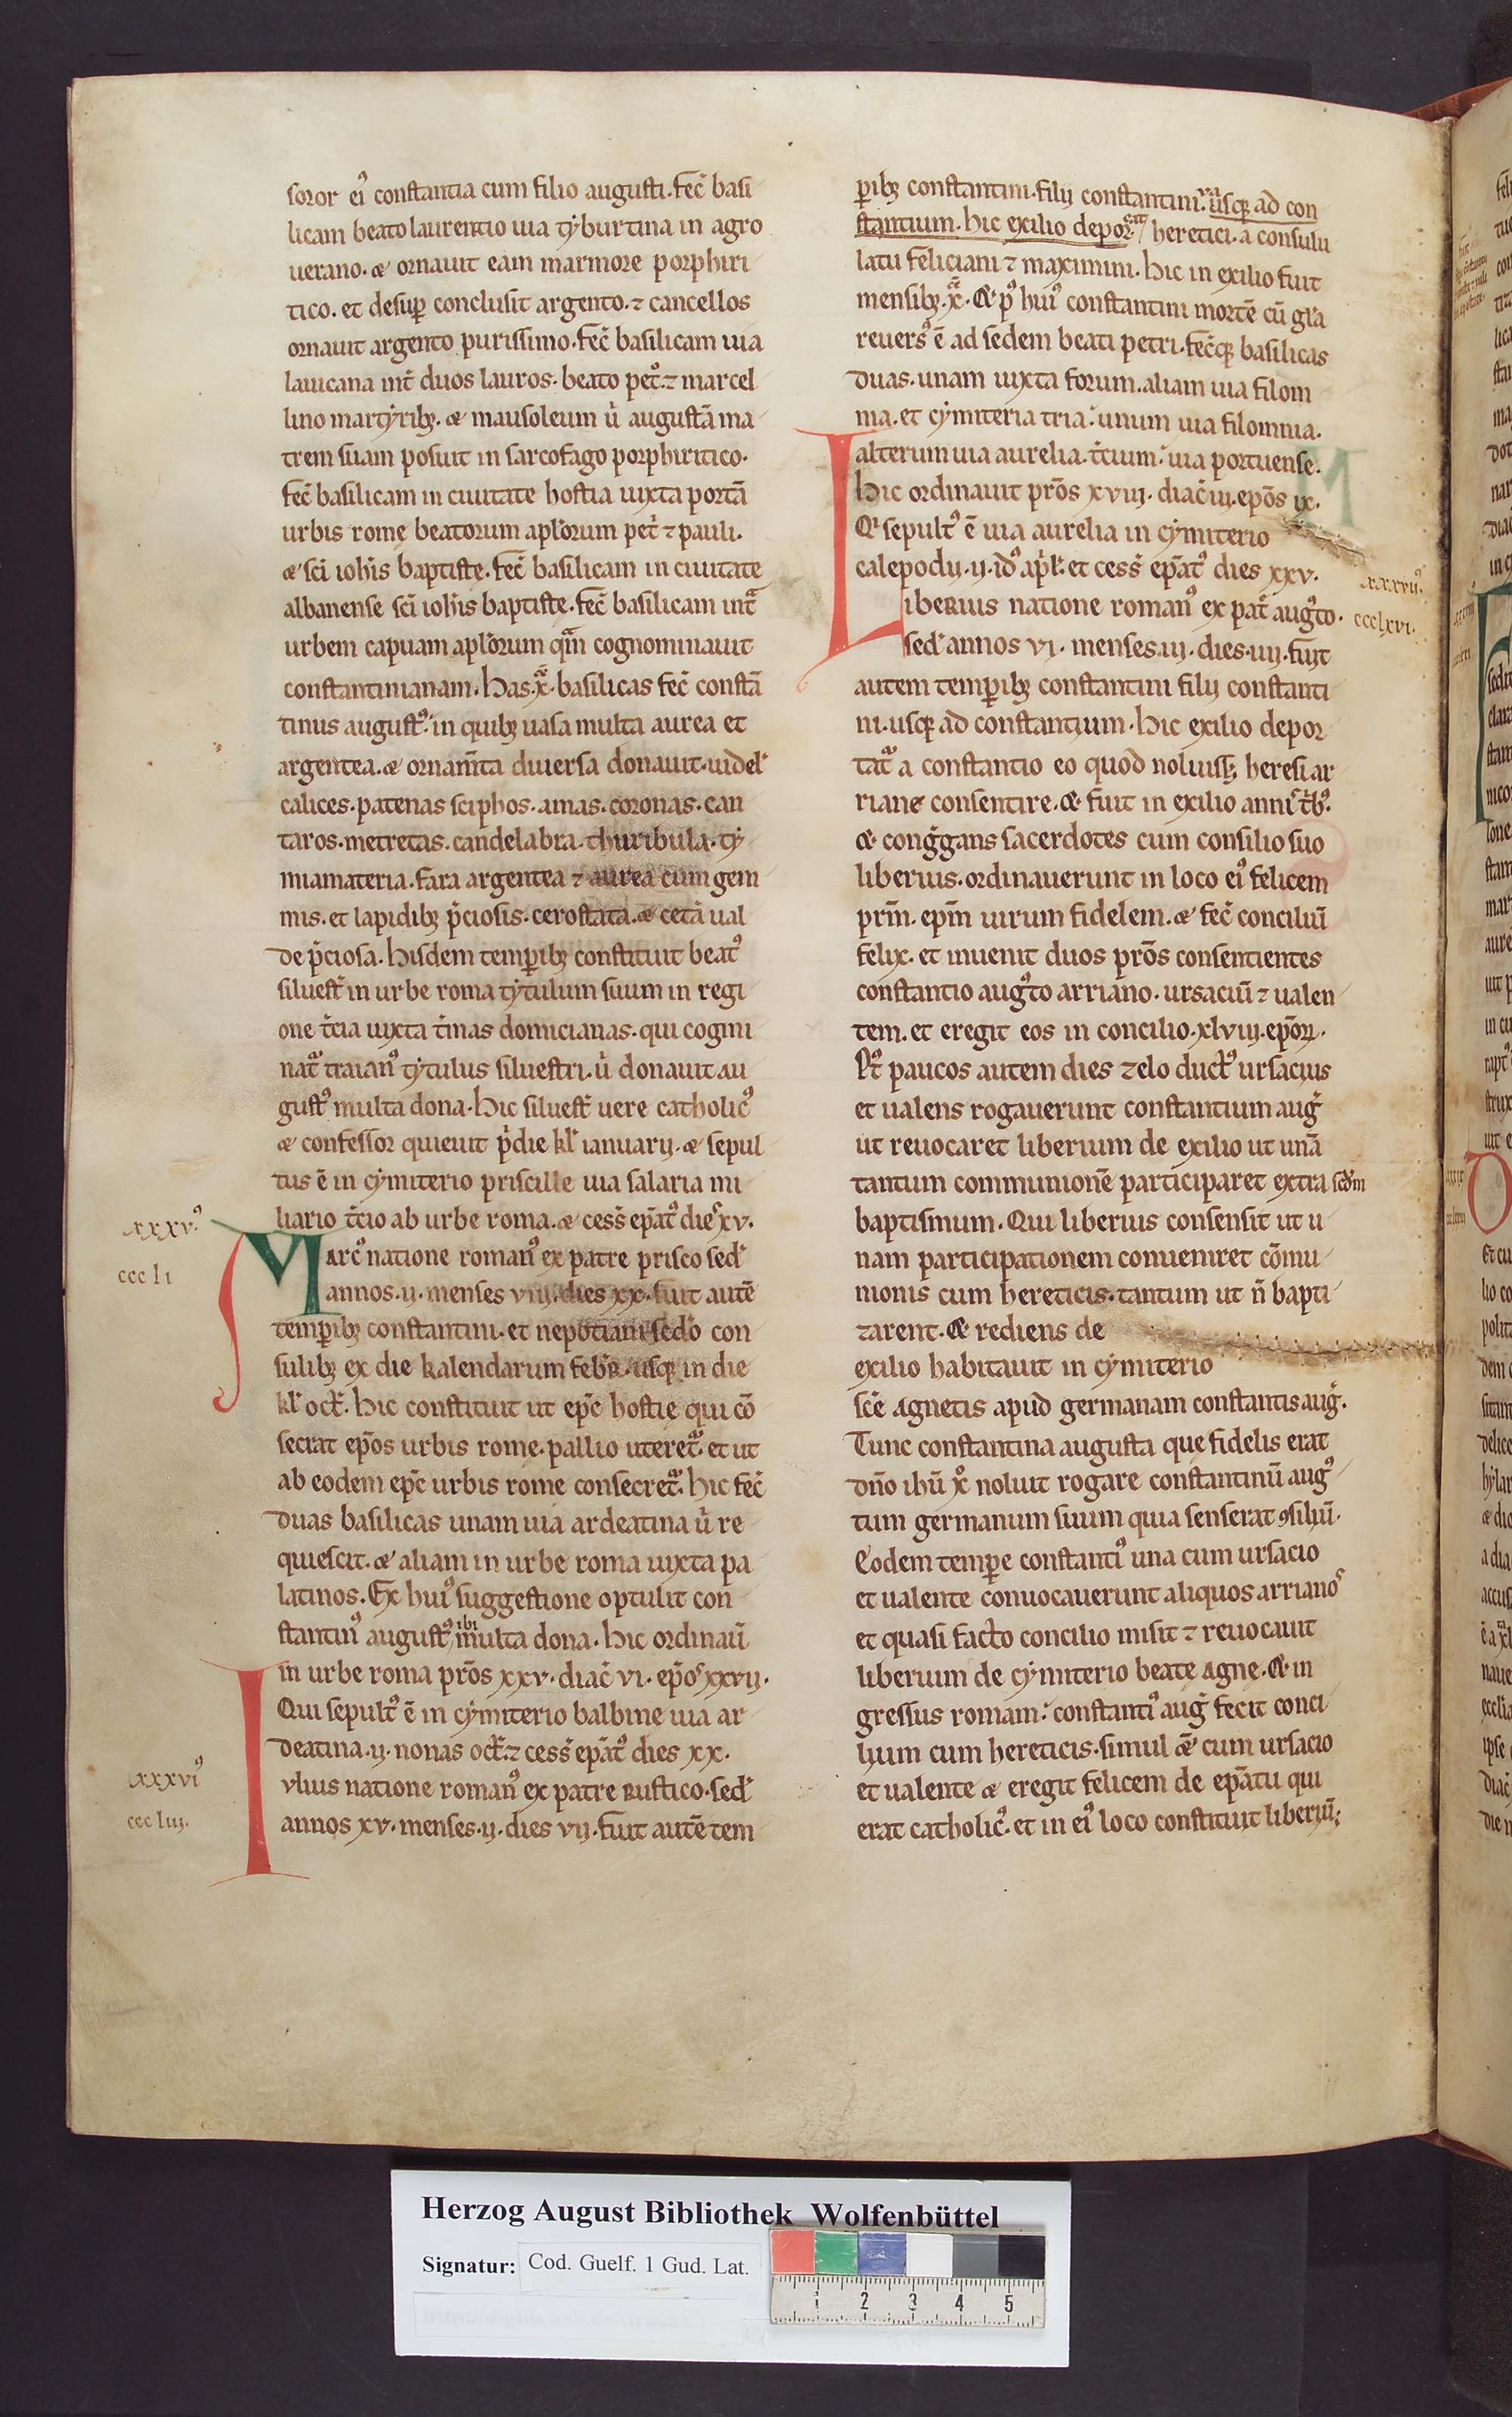 soror ei᾽ constantia cum filio augusti. fec̄ basi
licam beato laurentio uia tyburtina in agro
uerano. & ornauit eam marmore porphiri
tico. et desup̄ conclusit argento. ⁊ cancellos
ornauit argento purissimo. fec̄ basilicam uia
lauicana int̄ duos lauros. beato pet°. ⁊ marcel
lino martyrib; & mausoleum u̇ augustā ma
trem suam posuit in sarcofago porphiritico.
fec̄ basilicam in ciuitate hostia iuxta portā
urbis rome beatorum apl̄orum pet̄ ⁊ pauli.
& sc̄i ioh̄is baptiste. fec̄ basilicam in ciuitate
albanense sc̄i ioh̄is baptiste. fec̄ basilicam int̄
urbem capuam apl̄orum qm̄ cognominauit
constantinianam. Has .x. basilicas fec̄ constā
tinus august᾽. in quib; uasa multa aurea et
argentea. & ornam̄ta diuersa donauit. uidel᾽
calices. patenas sciphos. amas. coronas. can
taros. metretas. candelabra. thuribula. ty
miamateria. fara argentea ⁊ aurea cum gem
mis. et lapidib; p̄ciosis. cerostata. & cetā ual
de p̄ciosa. Hisdem temp̄ib; constituit beat᾽
siluest̄ in urbe roma tytulum suum in regi
one t̄cia iuxta t̄mas domicianas. qui cogmi
nat᾽ traian᾽ tytulus siluestri. u̇ donauit au
gust᾽ multa dona. Hic siluest̄ uere catholic᾽
& confessor quieuit p̄die kl᾽ ianuarij. & sepul
tus ē in cymiterio priscille uia salaria mi
liario t̄cio ab urbe roma. & cess̄ ep̄at᾽ dies xv.
xxxv°
ccc li
Marc᾽ natione roman᾽ ex patre prisco sed᾽
annos .ij. menses viij. dies xx. fuit autē
temp̄ib; constantini. et nepotiani ⁊ secd̄o con
sulib; ex die kalendarum feb̄r. usq; in die
kl᾽ oct̄. Hic constituit ut ep̄c hostie qui cō
secrat ep̄os urbis rome. pallio uteret᾽. et ut
ab eodem ep̄c urbis rome consecret᾽. Hic fec̄
duas basilicas unam uia ardeatina u̇ re
quiescit. & aliam in urbe roma iuxta pa
latinos. Ex hui᾽ suggestione optulit con
stantin᾽ august᾽ ibi multa dona. Hic ordinau̅
in urbe roma pr̄os xxv. diac̄ vi. ep̄os xxvij.
Qui sepult᾽ ē in cymiterio balbine uia ar
deatina .ij. nonas oct̄. ⁊ cess̄ ep̄at᾽ dies xx.
xxxvi°
ccc liij.
Iulius natione roman᾽ ex patre rustico. sed᾽
annos xv. menses .ij. dies vij. fuit autē tem
p̄ib; constantini. filij constantini. usq; ad con
stantium. Hic exilio depor heretici. a consulu
latu feliciani ⁊ maximini. Hic in exilio fuit
mensib; .x. & p᾽ hui᾽ constantini mortē cū gl̄a
reuers᾽ ē ad sedem beati petri. fec̄q; basilicas
duas. unam iuxta forum. aliam uia filom
ma. et cymiteria tria. unum uia filominia.
alterum uia aurelia. t̄cium. uia portuense.
Hic ordinauit pr̄os xviij. diac̄ iij. ep̄os ix.
Q' sepult᾽ ē uia aurelia in cymiterio
calepodij .ij. id᾽ ap̄l. et cess̄ ep̄at᾽ dies xxv.
xxxvij°
ccclxvi.
Liberius natione roman᾽ ex pat̄ aug᾽to.
sed᾽ annos vi. menses .iij. dies .iiij. fuit
autem temp̄ib; constantini filij constanti
ni. usq; ad constantium. Hic exilio depor
tat᾽ a constantio eo quod noluiss; heresi ar
riane consentire. & fuit in exilio annis t̄b᾽.
& cong̅gans sacerdotes cum consilio suo
liberius. ordinauerunt in loco ei᾽ felicem
prm̄. epm̄ uirum fidelem. & fec̄ conciliū
felix. et inuenit duos pr̄os consentientes
constantio aug᾽to arriano. ursaciū ⁊ ualen
tem. et eregit eos in concilio. xlviij. ep̄oꝝ.
P̄t paucos autem dies zelo duct᾽ ursacius
et ualens rogauerunt constantium aug̅
ut reuocaret liberium de exilio ut unā
tantum communionē participaret extra scd̄m
baptismum. Qui liberius consensit ut u
nam participationem conueniret cōmu
nionis cum hereticis. tantum ut n̄ bapti
zarent. & rediens de
exilio habitauit in cymiterio
sc̄e Agnetis apud germanam constantis aug̅.
Tunc constantina augusta que fidelis erat
dn̄o ih̄u x° noluit rogare constantinū aug᾽
tum germanum suum quia senserat ꝯsiliū.
Eodem temp̄e constanti᾽ una cum ursacio
et ualente conuocauerunt aliquos arrianos
et quasi facto concilio misit ⁊ reuocauit
liberium de cymiterio beate Agne. & in
gressus romam. constanti᾽ aug̅ fecit conci
lium cum hereticis. simul & cum ursacio
et ualente & eregit felicem de ep̄atu qui
erat catholic᾽. et in ei᾽ loco constituit liberiū;
Herzog August Bibliothek Wolfenbüttel
Signatur: Cod. Guelf. 1 Gud. Lat.
1 2 3 4 5